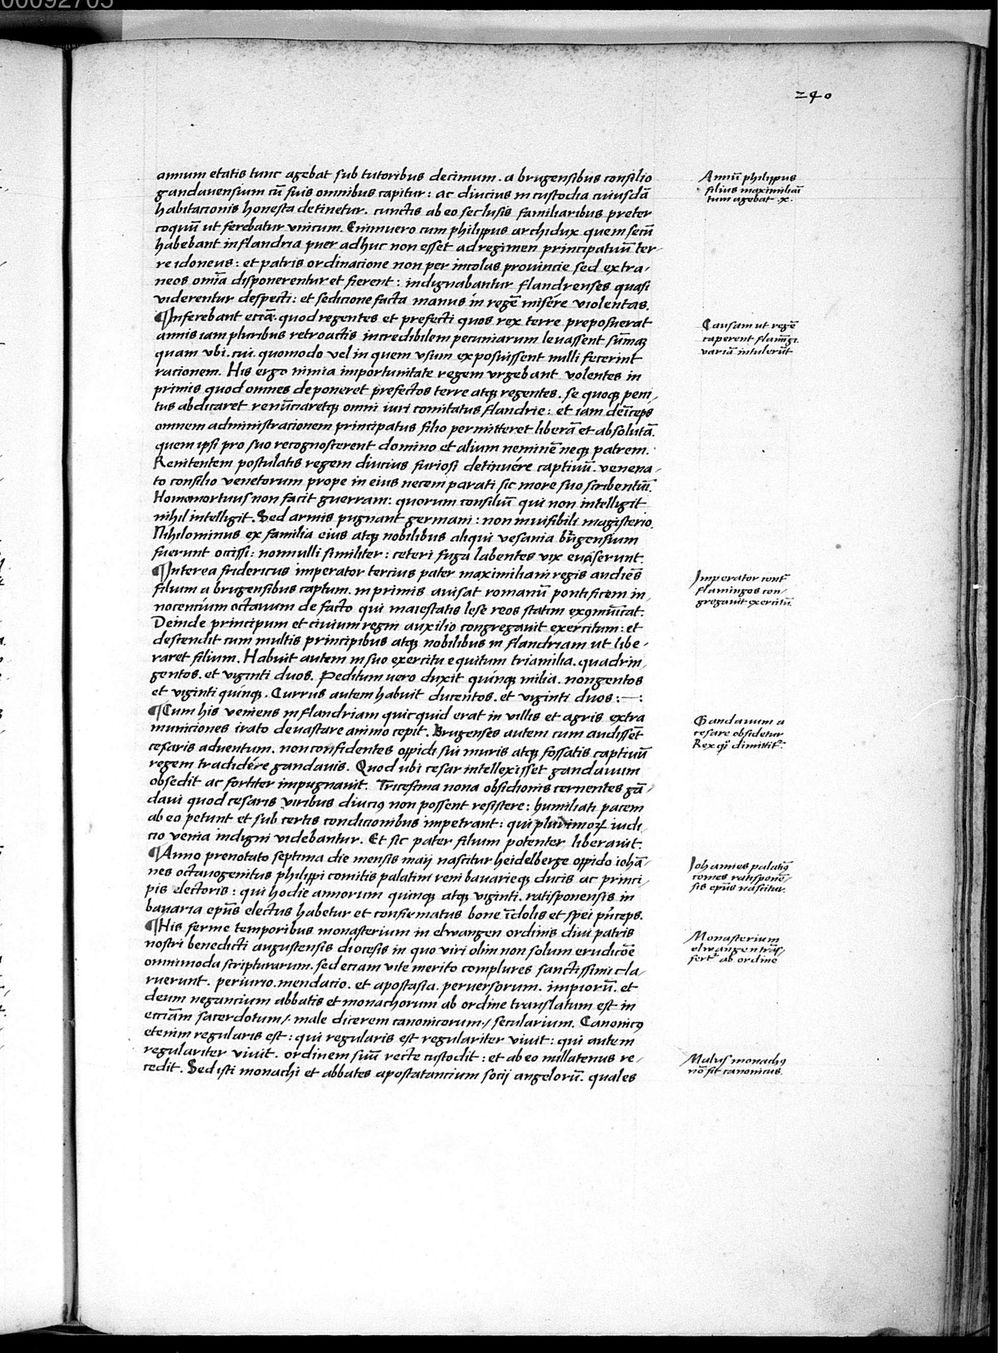 00092705
240
annum etatis tunc agebat sub tutoribus decimum. a brugensibus consilio
gandauensium cū suis omnibus capitur: ac diucius in custodia cuiusdā
habitacionis honesta detinetur. cunctis ab eo seclusis familiaribus preter
coquū ut ferebatur vnicum. Enimuero cum philippus archidux quem secū
habebant in flandria puer adhuc non esset ad regimen principatuū ter-
re idoneus: et patris ordinacione non per incolas prouincie sed extra-
neos omīa disponerentur et fierent: indignabantur flandrenses quasi
viderentur despecti: et sedicione facta manus in regē misére violentas.
¶Inferebant eciā quod regentes et prefecti quos rex terre preposuerat
annis iam pluribus retroactis incredibilem pecuniarum leuassent sūmaꝫ
quam vbi. cui. quomodo vel in quem vsum exposuissent nulli fecerint
racionem. His ergo nimia importunitate regem vrgebant volentes in
primis quod omnes deponeret prefectos terre atqꝫ regentes. se quoqꝫ peni-
tus abdicaret renūciaretqꝫ omni iuri comitatus flandrie: et iam deīceps
omnem administracionem principatus filio permitteret liberā et absolutā.
quem ipsi pro suo recognoscerent domino et alium neminē neqꝫ patrem.
Renitentem postulatis regem diucius furiosi detinuére captiuū. venena-
to consilio venetorum prope in eius necem parati sic more suo scribentiū.
Homo mortuus non facit guerram: quorum consiliū qui non intelligit
nihil intelligit. Sed armis pugnant germani: non inuisibili magisterio.
Nihilominus ex familia eius atqꝫ nobilibus aliqui vesania brūgensium
fuerunt occisi: nonnulli similiter: ceteri fuga labentes vix euaserunt.
¶Interea fridericus imperator tercius pater maximiliani regis audiēs
filium a brugensibus captum. in primis auisat romanū pontificem in-
nocencium octauum de facto qui maiestatis lese reos statim excōmūicat.
Deinde principum et ciuium regni auxilio congregauit exercitum: et
descendit cum multis principibus atqꝫ nobilibus in flandriam ut libe-
raret filium. Habuit autem in suo exercitu equitum tria milia. quadrin-
gentos. et viginti duos. Peditum uero duxit quinqꝫ milia. nongentos
et viginti quinqꝫ. Currus autem habuit ducentos. et viginti duos:—:
¶Cum his veniens in flandriam quicquid erat in villis et agris extra
municiones irato deuastare animo cepit. Brugenses autem cum audissēt
cesaris aduentum. non confidentes oppidi sui muris atqꝫ fossatis captiuū
regem tradidére gandauis. Quod ubi cesar intellexisset gandauum
obsedit ac fortiter impugnauit. Tricesima nona obsidionis cernentes gā-
daui quod cesaris viribus diucius non possent resistere: humiliati pacem
ab eo petunt et sub certis condicionibus impetrant: qui plurimoꝝ iudi-
cio venia indigni videbantur. Et sic pater filium potenter liberauit.
¶Anno prenotato septima die mensis maij nascitur heidelberge oppido iohā-
nes octauogenitus philippi comitis palatini reni bauarieqꝫ ducis ac princi-
pis electoris: qui hodie annorum quinqꝫ atqꝫ viginti. ratisponensis in
bauaria epūs electus habetur et confirmatus bone īdolis et spei pn̄ceps.
¶His ferme temporibus monasterium in elwangen ordinis diui patris
nostri benedicti augustensis diocesis in quo viri olim non solum erudicōe
omnimoda scripturarum. sed eciam vite merito complures sanctissimi cla-
ruerunt. periurio. mendacio. et apostasia. peruersorum. impiorū. et
deum negancium abbatis et monachorum ab ordine translatum est in
ecc̄iam sacerdotum/. male dicerem canonicorum/ secularium. Canonicꝯ
etenim regularis est: qui regularis est regulariter viuit: qui autem
regulariter viuit. ordinem suū recte custodit: et ab eo nullatenus re-
cedit. Sed isti monachi et abbates apostatancium socij angelorū. quales
Annū philippus
filius maximiliā
tum agebat .x.
Causam ut regē
caperent flamīgi.
variā intulerūt
Imperator contͣ
flamingos con-
gregauit exercitū.
Gandauum a
cesare obsidetur
Rex qꝫ dimittitͬ.
Johannes palatinꝯ
comes ratisponē-
sis epūs nascitur.
Monasterium
elwangen trās-
fertͬ ab ordine
Malus monachꝯ
nō fit canonicus.